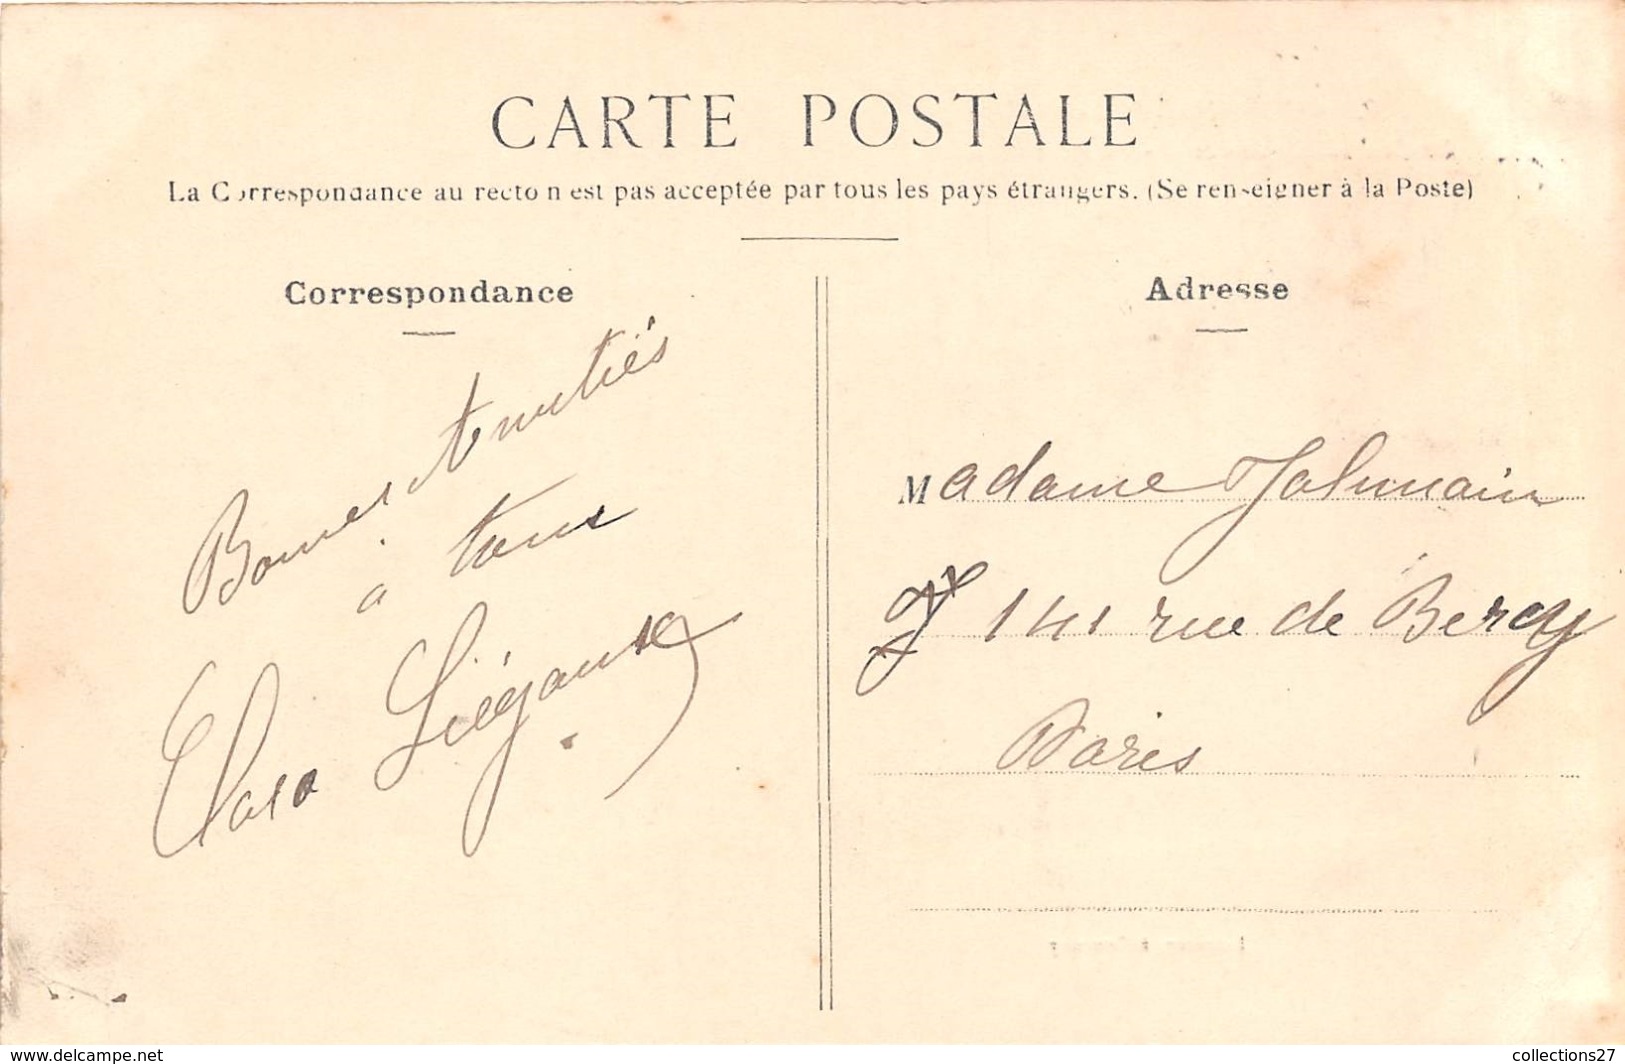 CARTE POSTALE
La Correspondance au recto n'est pas acceptée par tous les pays étrangers. (Se renseigner à la Poste)
Correspondance
Bonnes amitiés
a tous
Clara
Adresse
Madame
141 rue de Bercy
Paris
www.delcampe.net
collections27